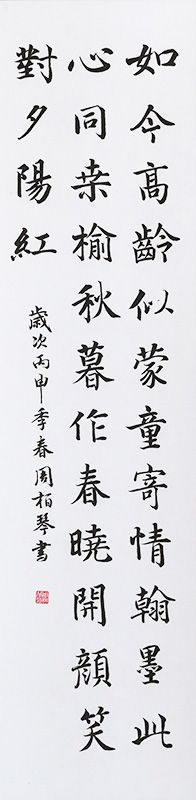 如今高齡似蒙童寄情翰墨此
心同桒榆秋暮作春曉開顏笑
對夕陽紅
歲次丙申季春周柏琴書